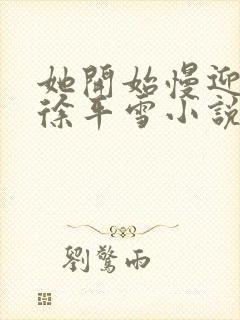 她開始慢迎
徐平雪小說
劉驚雨